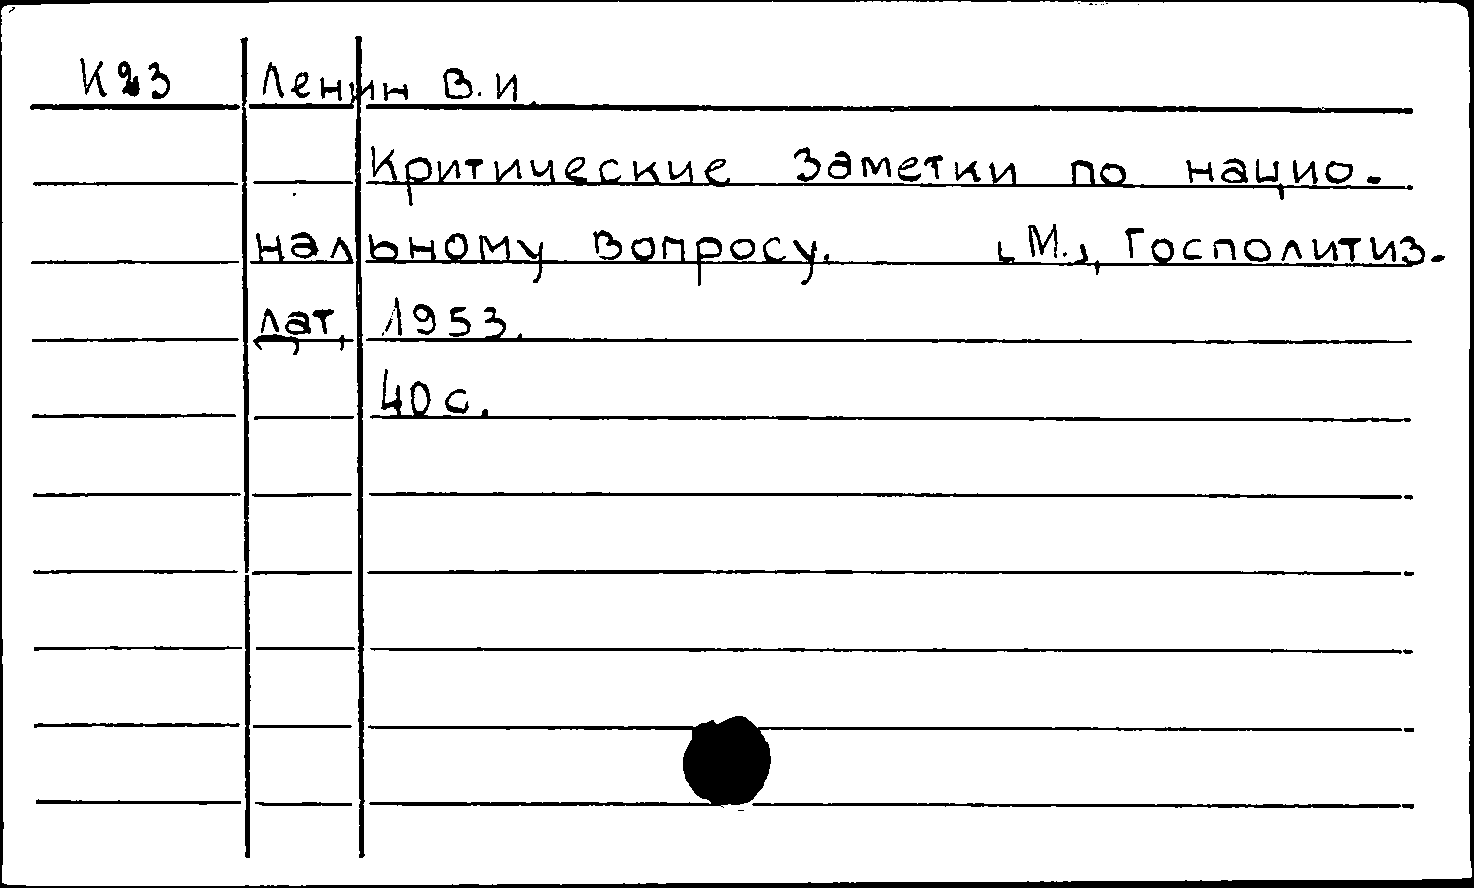 К23 Ленин В.И.
Критические заметки по нацио-
нальному вопросу. [М.], Госполитиз-
дат, 1953.
40 с.